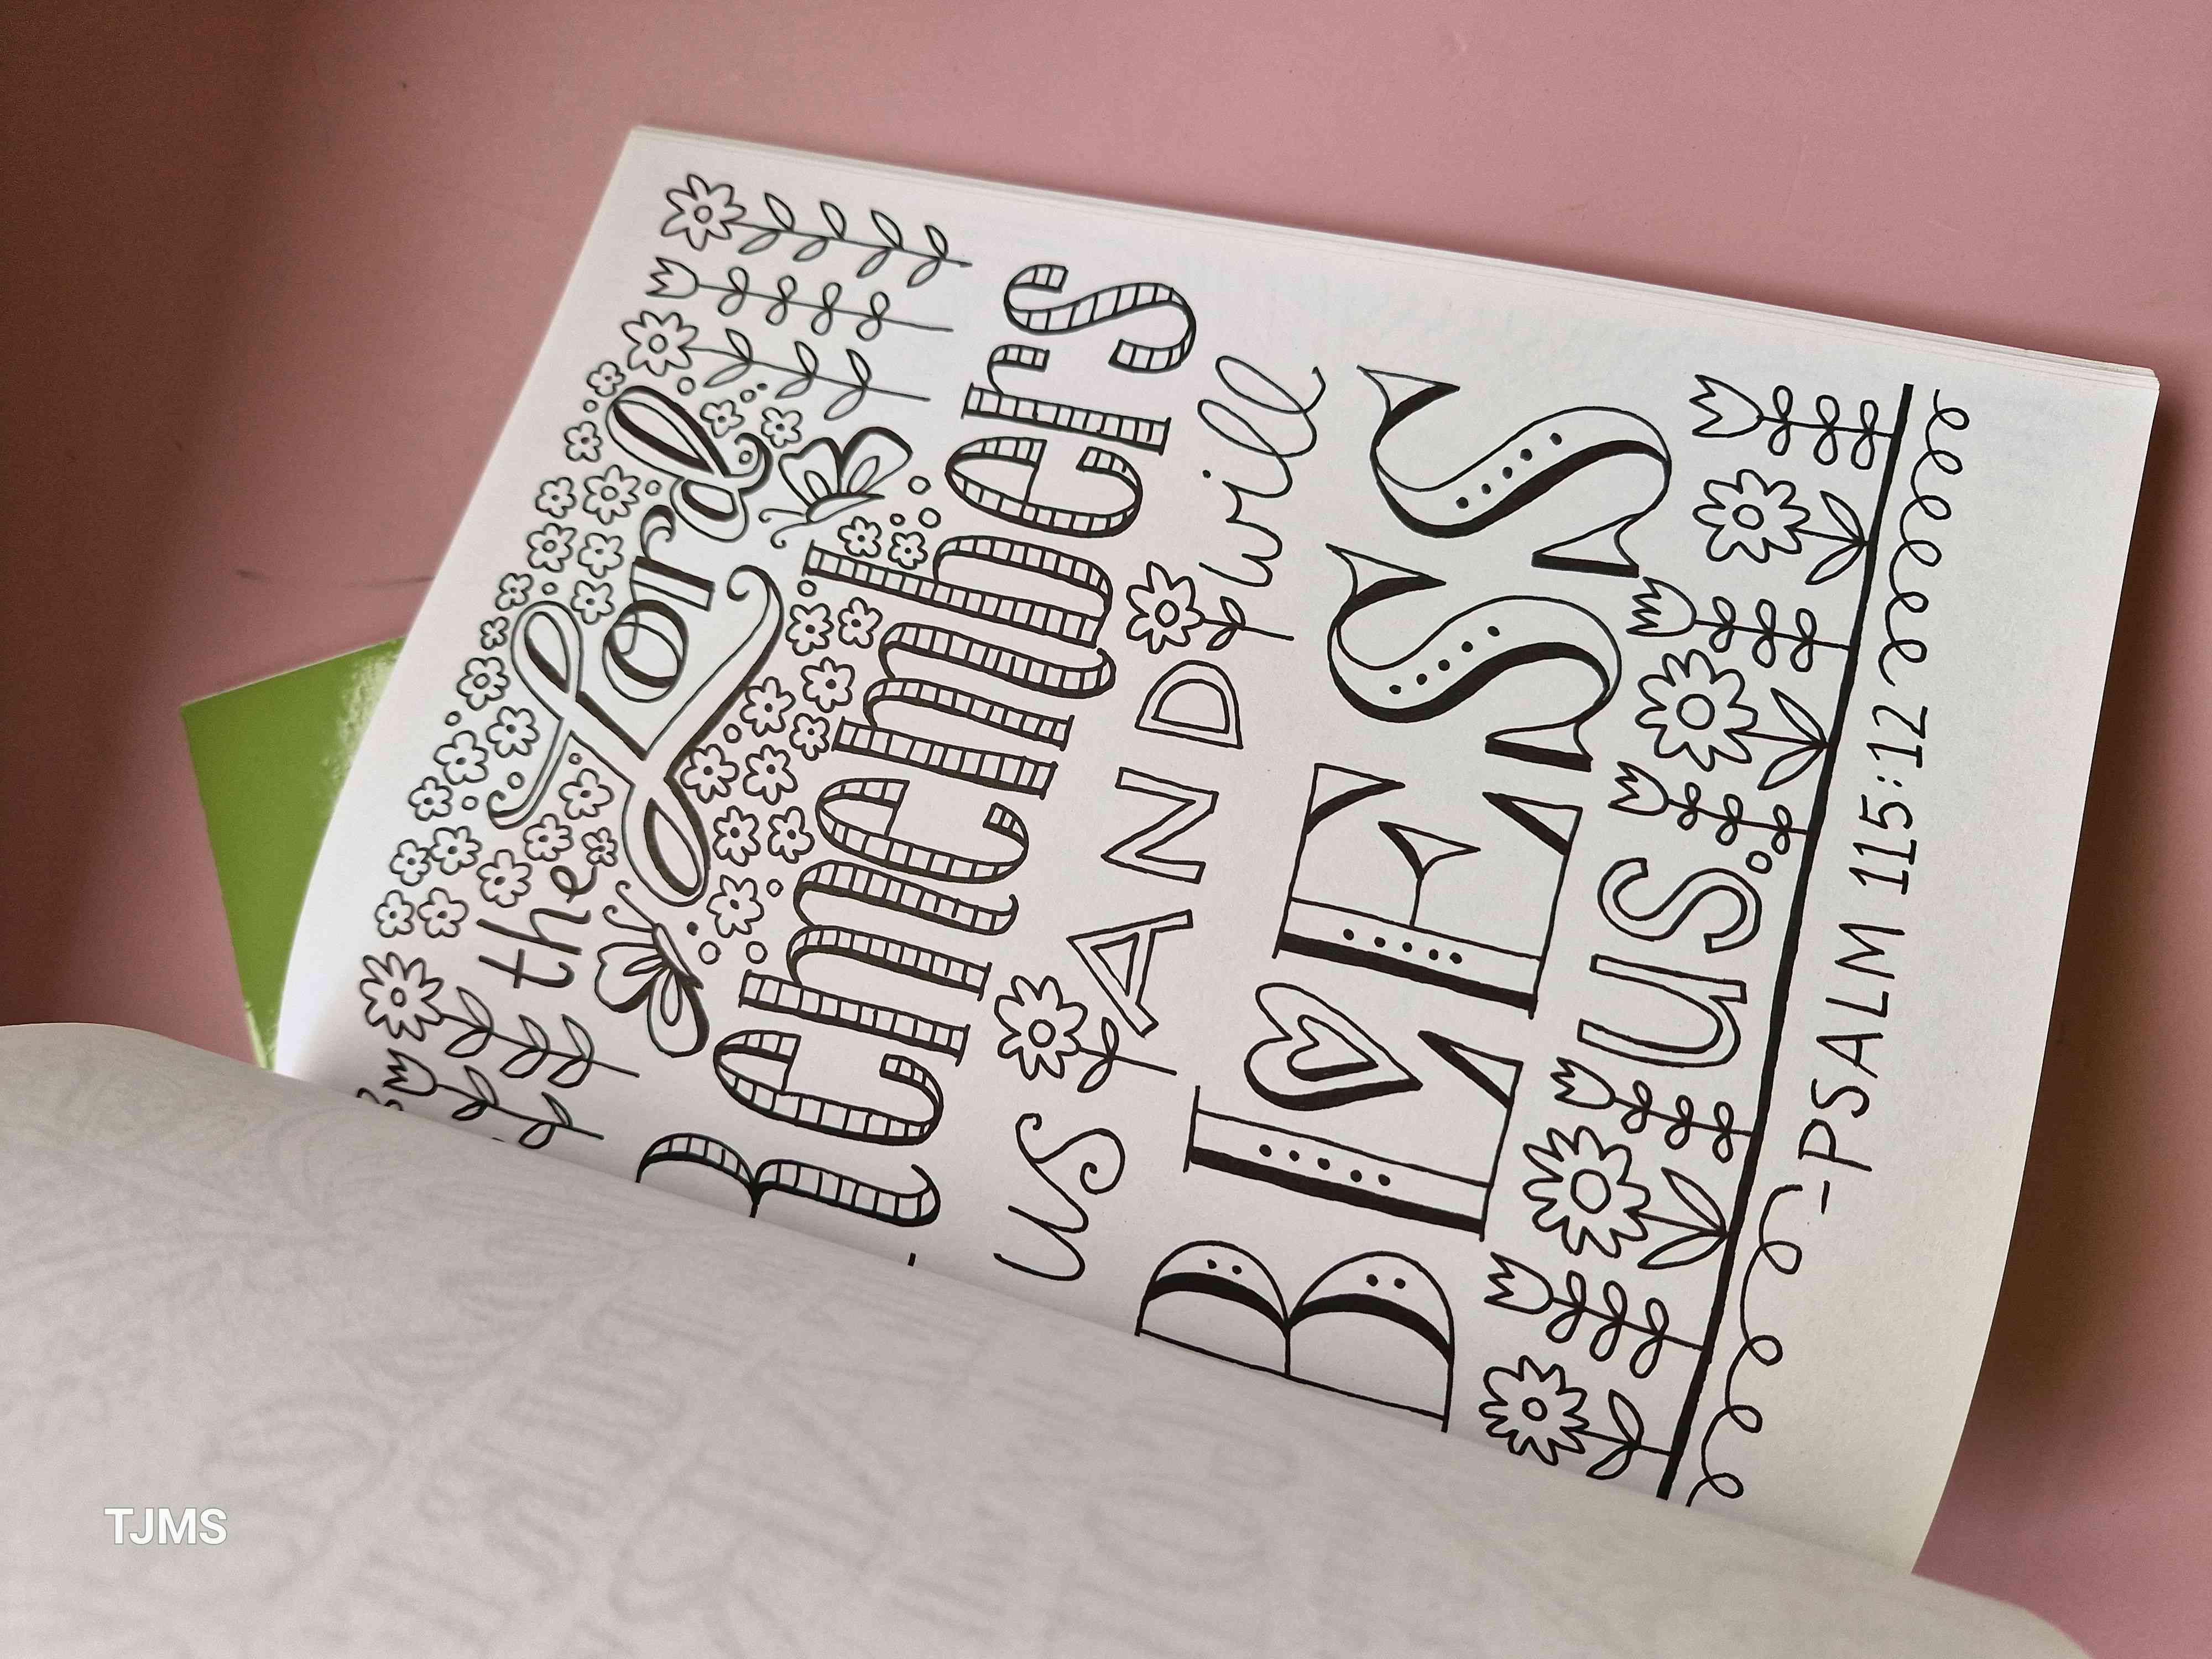 the Lord
Remembers
us AND will
BLESS
us.
-PSALM 115:12
TJMS